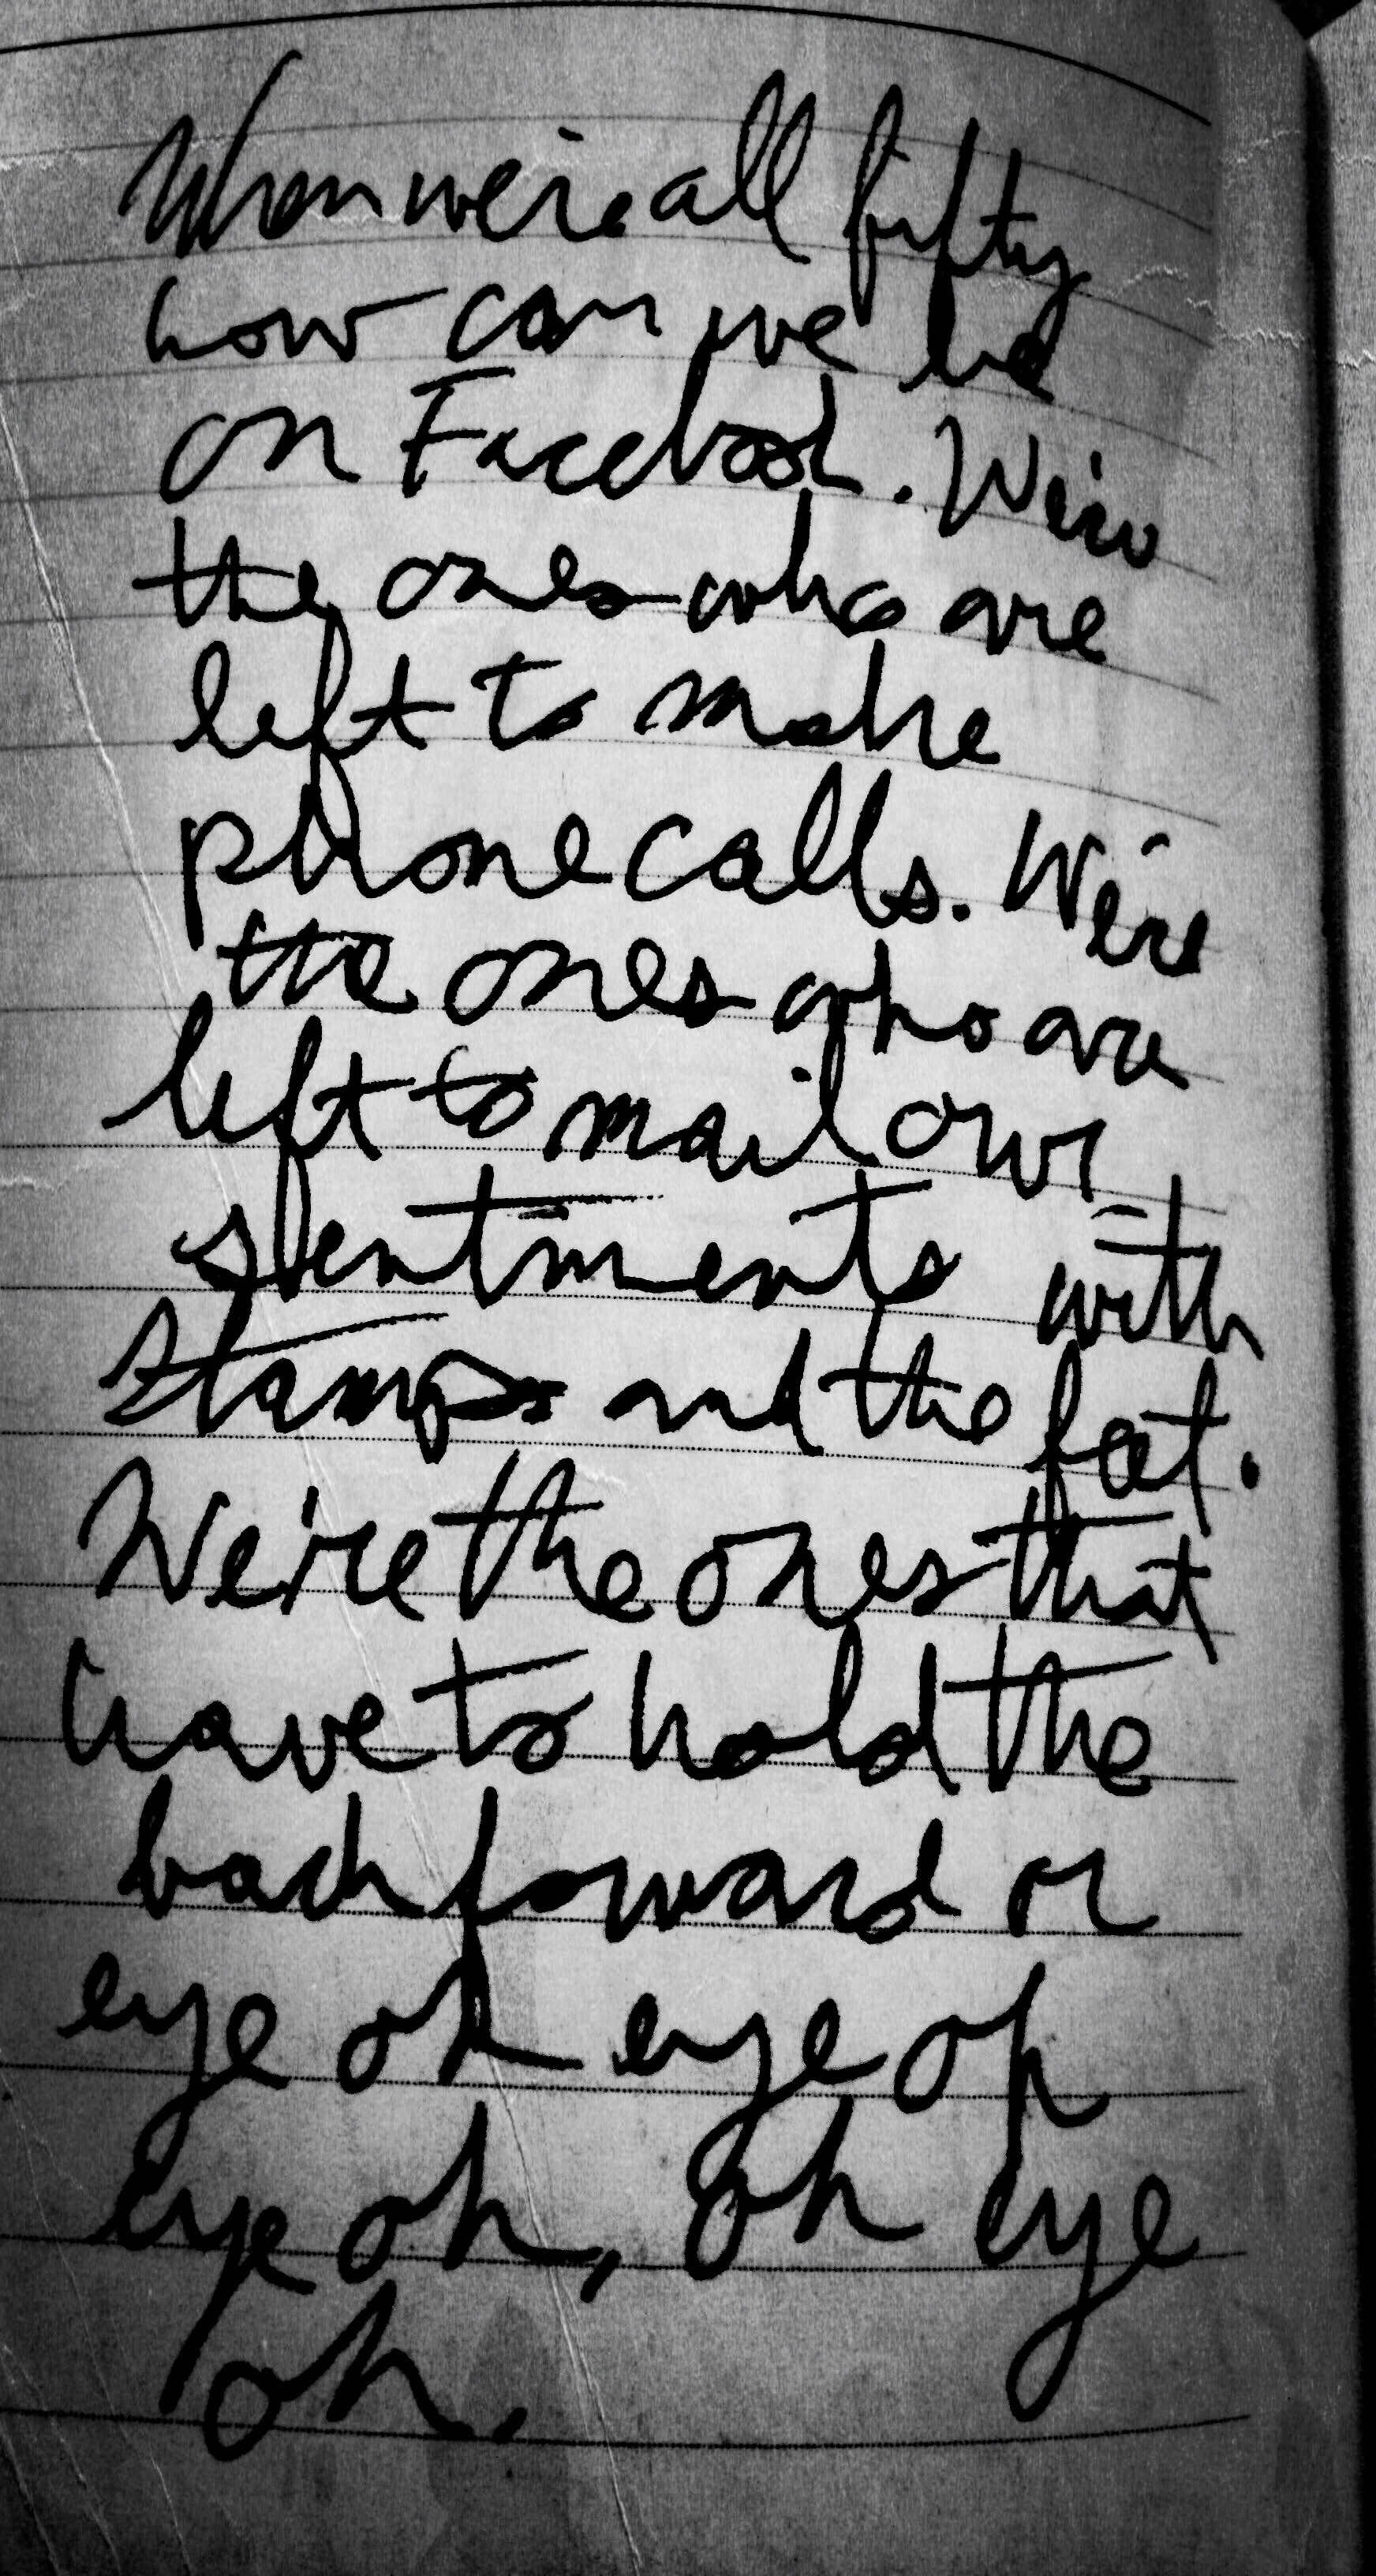 When we're all fifty
how can we be
on Facebook. We're
the ones who are
left to make
phone calls. We're
the ones who are
left to mail our
sentiments with
stamps and the feet.
We're the ones that
have to hold the
back forward or
eye oh eye oh
eye oh, oh eye
oh.